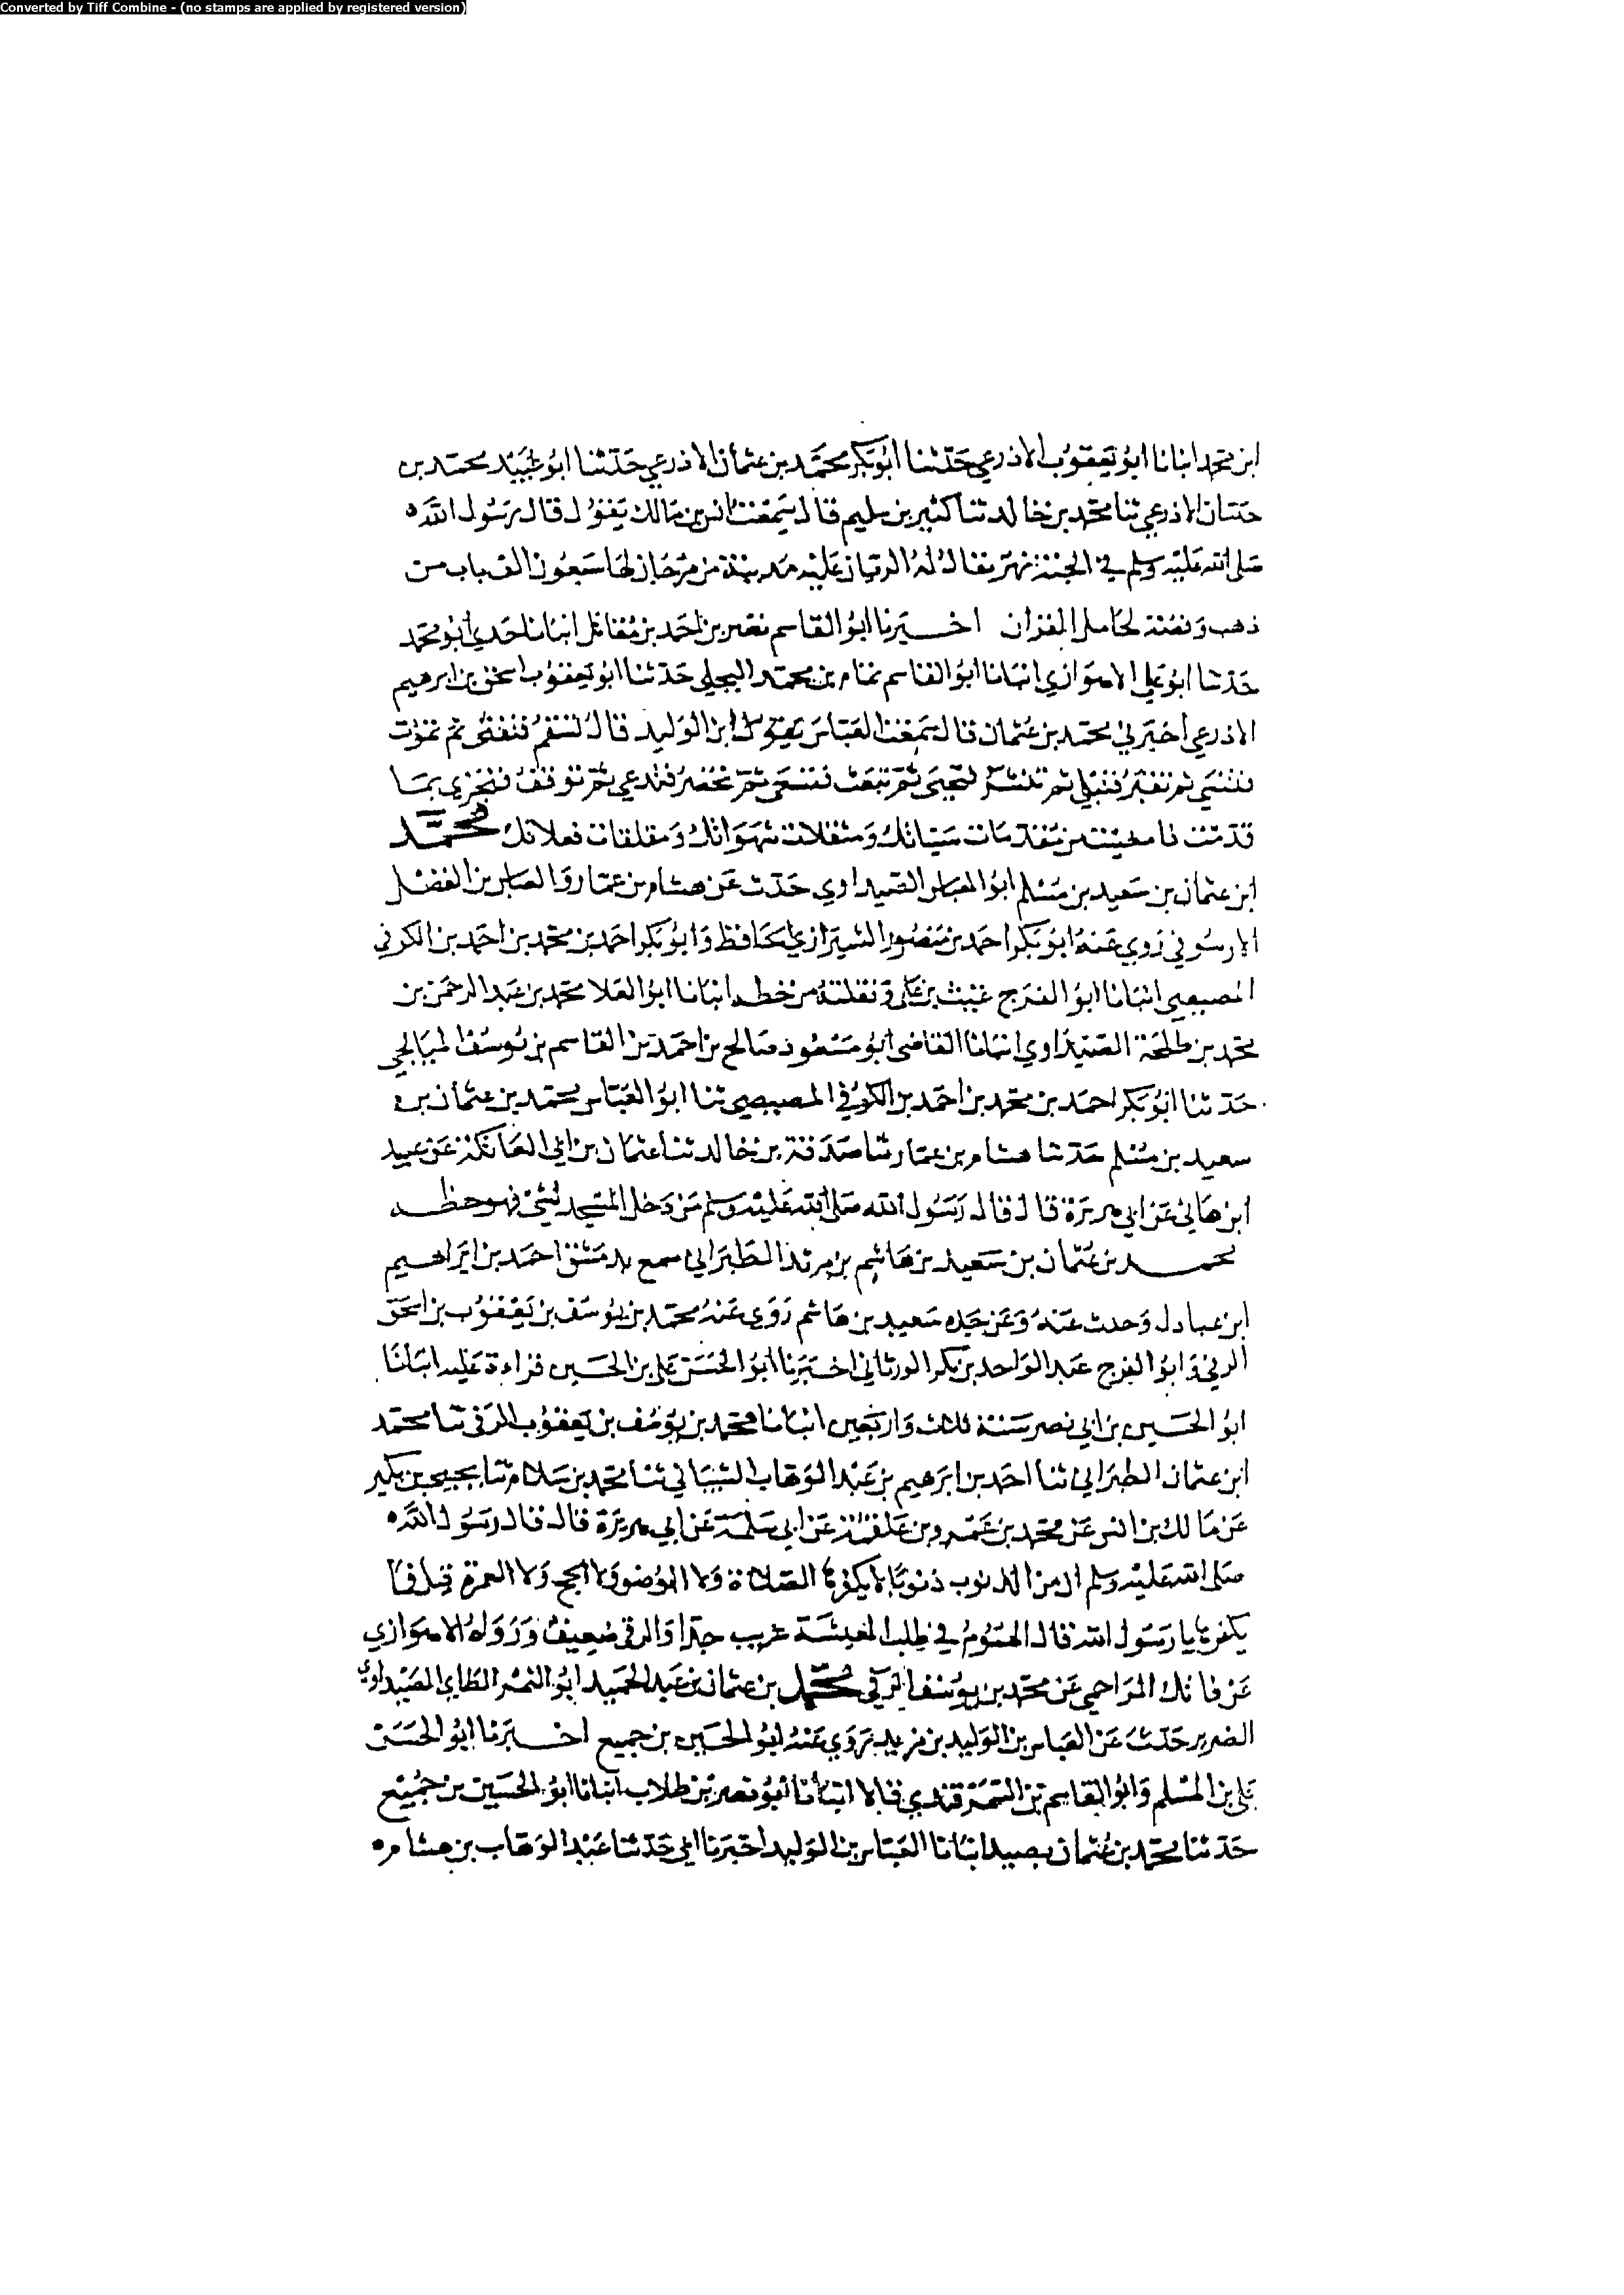 Converted by Tiff Combine - (no stamps are applied by registered version)
ابن محمد انبانا ابو يعقوب الاذرعي حدثنا ابو بكر محمد بن عثمان الاذرعي حدثنا ابو عبيد محمد بن
حسان الاذرعي ثنا محمد بن خالد ثنا كثير بن سليم قال سمعت انس بن مالك يقول قال رسول الله
صلى الله عليه وسلم في الجنة نهر يقال له الريان عليه مدينة من مرجان لها سبعون الف باب من
ذهب وفضة لحامل القران اخبرنا ابو القاسم نصر بن احمد بن مقاتل انبانا جدي ابو محمد
حدثنا ابو علي الاهوازي انبانا ابو القاسم تمام بن محمد البجلي حدثنا ابو يعقوب اسحق بن ابرهيم
الاذرعي اخبرني محمد بن عثمان قال سمعت العباس يقول ابن الوليد قال لتسقم فتفنى ثم تموت
فتنسى ثم تقبر فتبلى ثم تنشر لتحيى ثم تبعث فتسعى ثم تحضر فتدعى ثم توقف فتجزى بما
قدمت من متقدمات سياتك ومثقلات شهواتك ومقلقات فعلاتك محمد
ابن عثمان بن سعيد بن مسلم ابو العباس الصيداوي حدث عن هشام بن عمار والعباس بن الفضل
الارسوفي روي عنه ابو بكر احمد بن منصور الشيرازي الحافظ وابو بكر احمد بن محمد بن احمد بن الكرفي
المصيصي انبانا ابو الفرج غيث بن علي ونقلته من خطه انبانا ابو العلا محمد بن عبد الرحمن بن
محمد بن طلحة الصيداوي انبانا القاضي ابو مسعود صالح بن احمد بن القاسم بن يوسف الميانجي
حدثنا ابو بكر احمد بن محمد بن احمد بن الكرفي المصيصي ثنا ابو العباس محمد بن عثمان بن
سعيد بن مسلم حدثنا هشام بن عمار ثنا صدقة بن خالد ثنا عثمان بن ابي العاتكة عن عمير
ابن هاني عن ابي هريرة قال قال رسول الله صلى الله عليه وسلم من دخل المسجد لشي فهو حظه
محمد بن عثمان بن سعيد بن هاشم بن مرثد الطبراني سمع بدمشق احمد بن ابراهيم
ابن عبادل وحدث عنه وعن جده سعيد بن هاشم روى عنه محمد بن يوسف بن يعقوب بن اسحق
الرقي وابو الفرج عبد الواحد بن بكر الورثاني اخبرنا ابو الحسن علي بن الحسين قراءة عليه انبانا
ابو الحسين بن ابي نصر سنة ثلاث واربعين انبانا محمد بن يوسف بن يعقوب الرقي ثنا محمد
ابن عثمان الطبراني ثنا احمد بن ابرهيم بن عبد الوهاب الشيباني ثنا محمد بن سلام ثنا يحيى بن بكير
عن مالك بن انس عن محمد بن عمرو بن علقمة عن ابي سلمة عن ابي هريرة قال قال رسول الله
صلى الله عليه وسلم ان من الذنوب ذنوبا لا يكفرها الصلاة ولا الوضو ولا الحج ولا العمرة قيل فما
يكفرها يا رسول الله قال الهموم في طلب المعيشة غريب جدا والرقي ضعيف ورواه الاهوازي
عن فاتك المزاحمي عن محمد بن يوسف الرقي محمد بن عثمان بن عبد الحميد ابو النمر الطاي الصيداوي
الضرير حدث عن العباس بن الوليد بن مزيد روي عنه ابو الحسين بن جميع اخبرنا ابو الحسن
علي بن المسلم وابو القاسم بن السمرقندي قالا انبانا ابو نصر بن طلاب انبانا ابو الحسين بن جميع
حدثنا محمد بن عثمان بصيدا انبانا العباس بن الوليد اخبرنا ابي حدثنا عبد الوهاب بن هشام